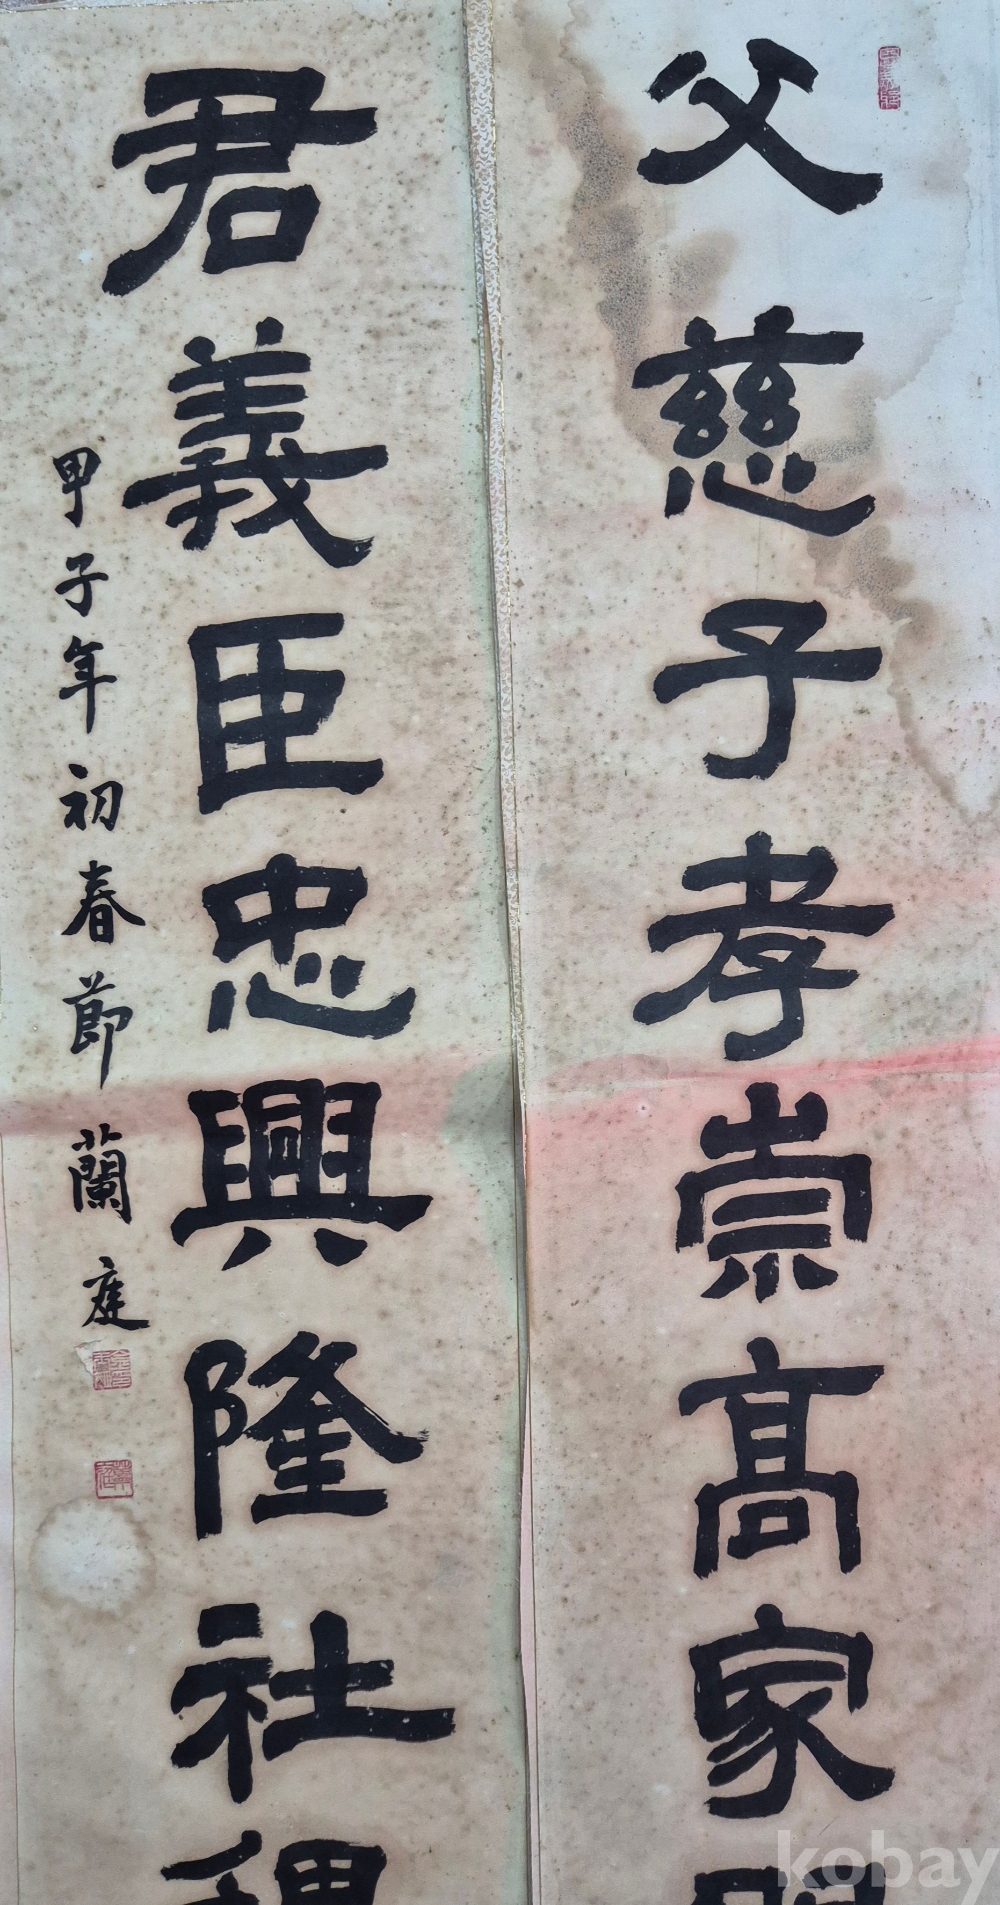 父慈子孝崇高家
君義臣忠興隆社
甲子年初春節蘭庭
kobay